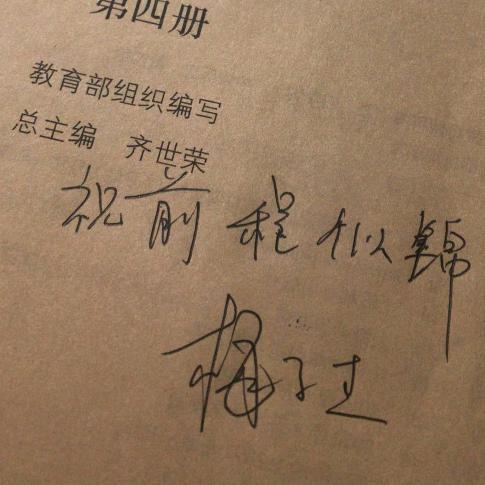 第四册
教育部组织编写
总主编 齐世荣
祝前程似锦